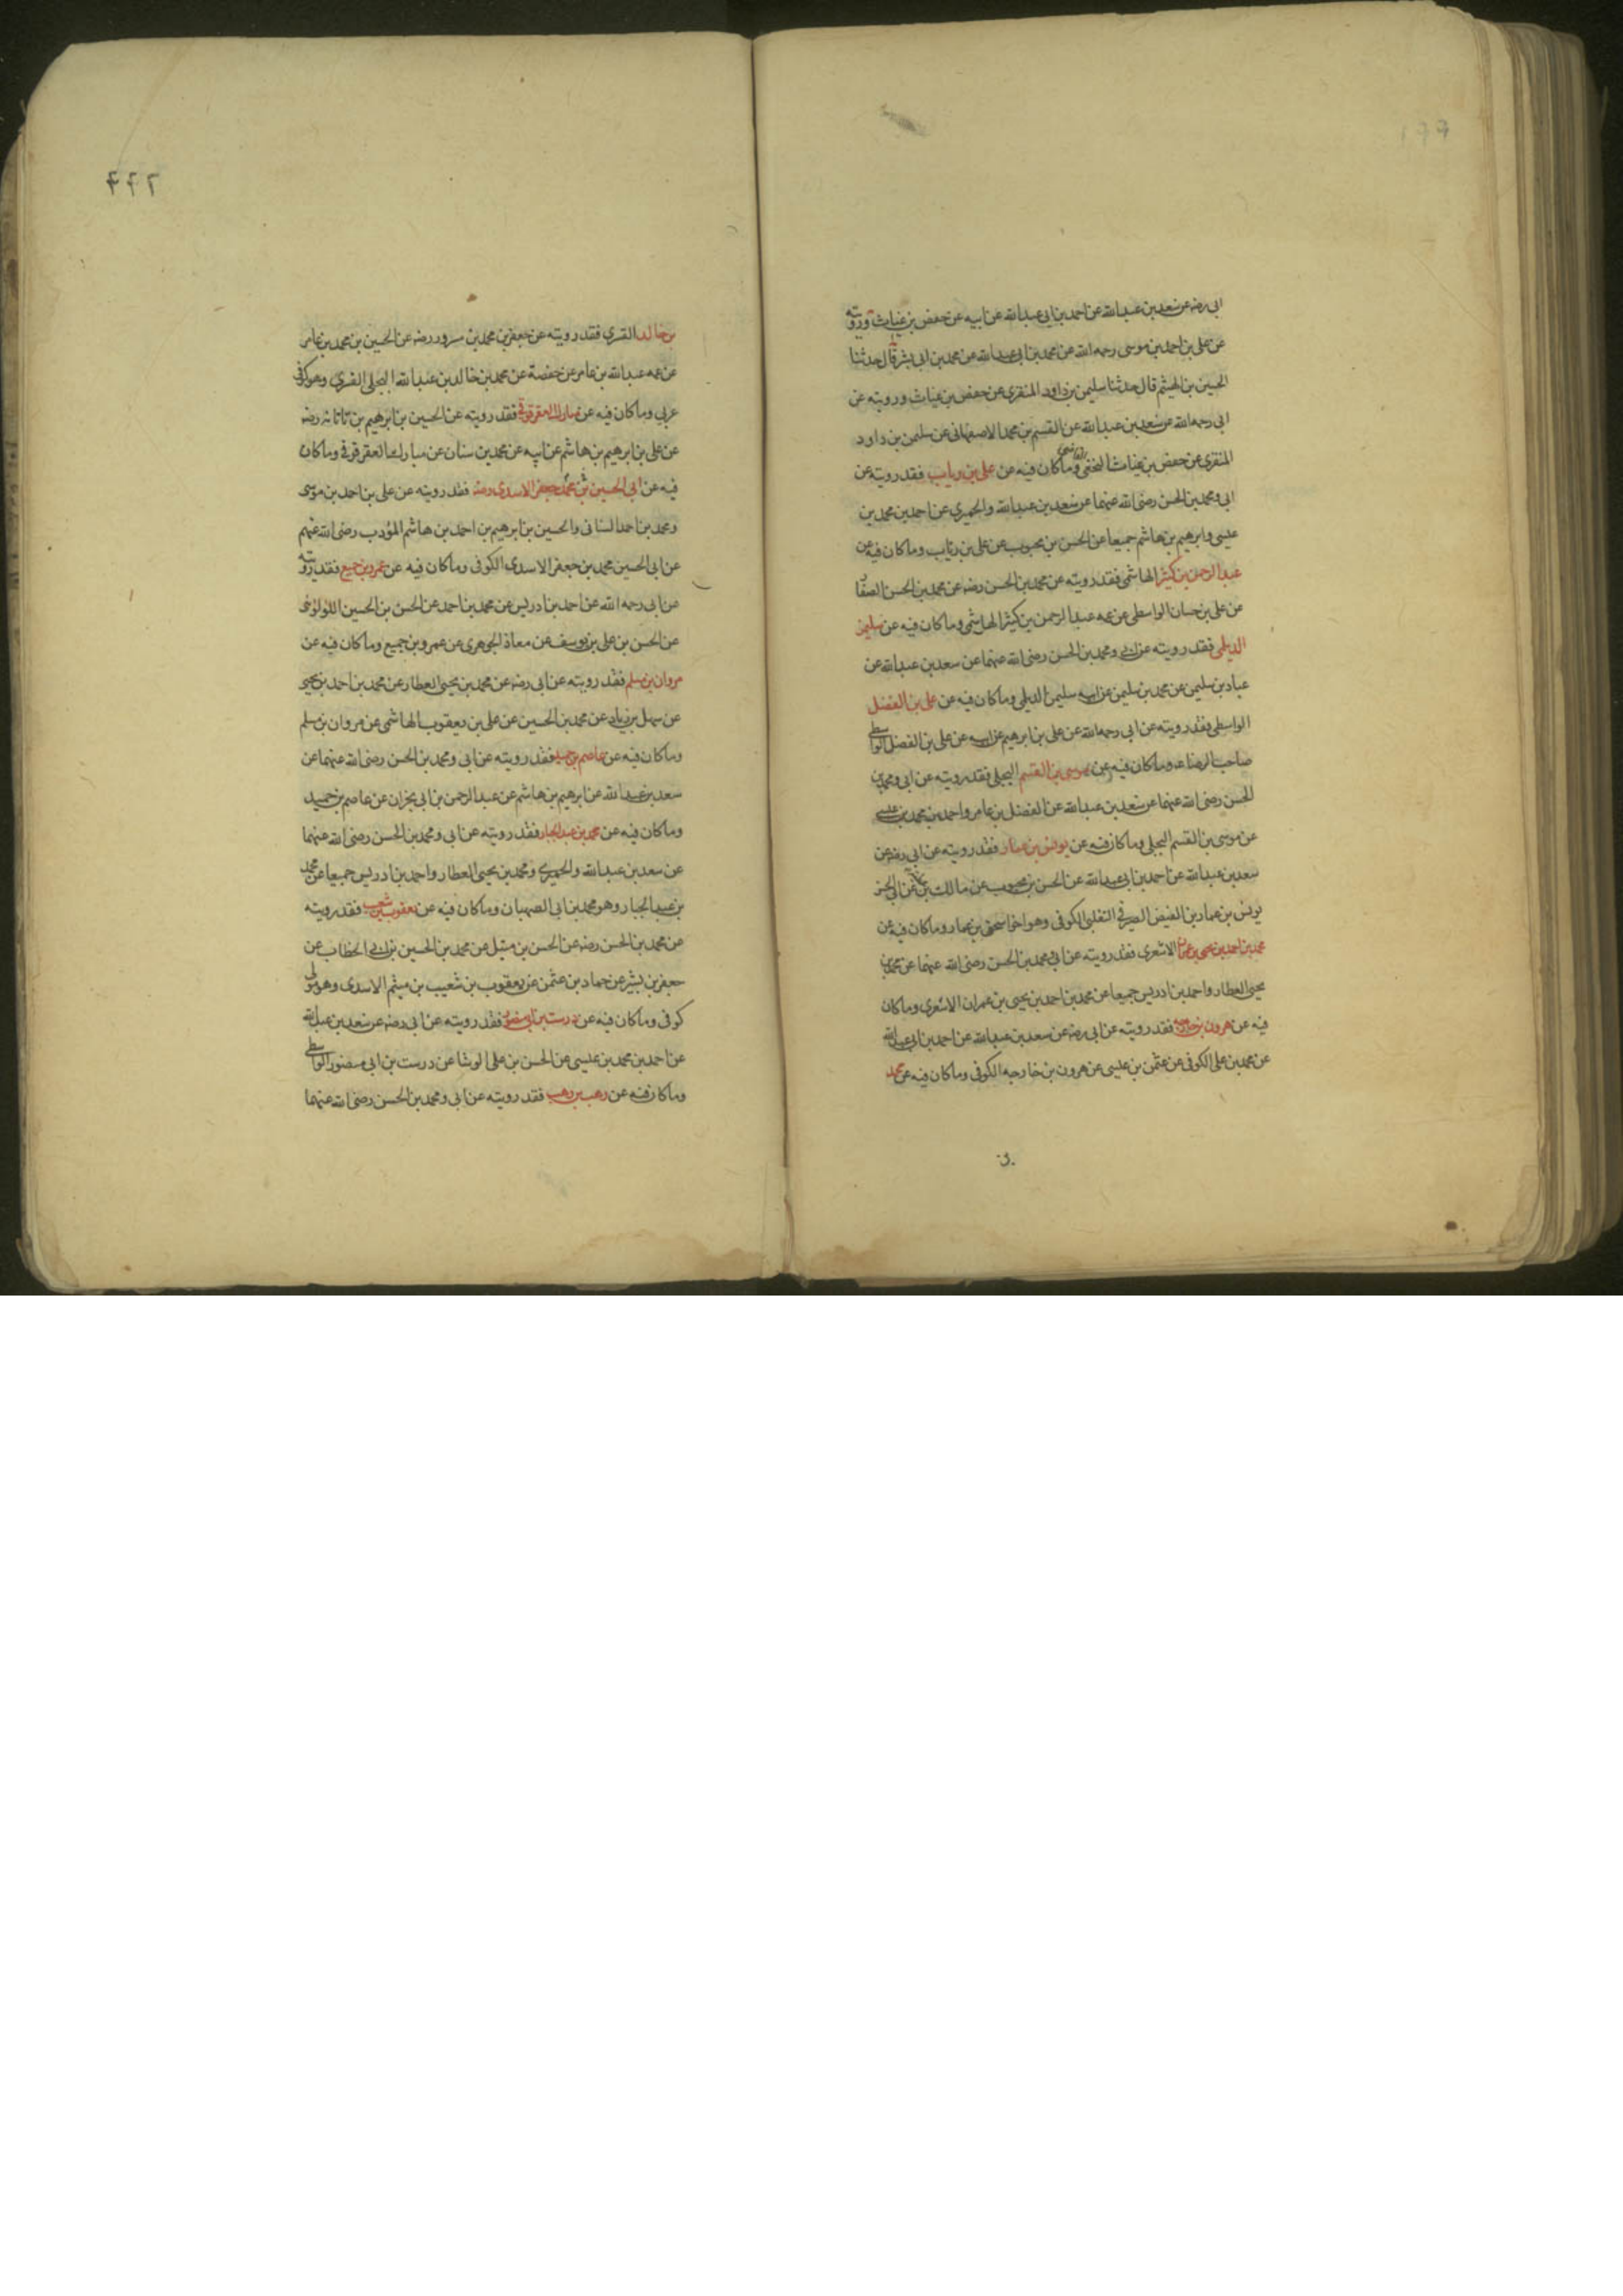 ابى رضه عن سعد بن عبد الله عن احمد بن ابى عبد الله عن ابيه عن حفص بن غياث ورويته
عن على بن احمد بن موسى رحمه الله عن محمد بن ابى عبد الله عن محمد بن ابى بشر قال حدثنا
الحسين بن الهيثم قال حدثنا سليمن بن داود المنقرى عن حفص بن غياث ورويته عن
ابى رحمه الله عن سعد بن عبد الله عن القسم بن محمد الاصفهانى عن سليمن بن داود
المنقرى عن حفص بن غياث النخعى وما كان فيه عن على بن رياب فقد رويته عن
ابى ومحمد بن الحسن رضى الله عنهما عن سعد بن عبد الله والحميرى عن احمد بن محمد بن
عيسى وابرهيم بن هاشم جميعا عن الحسن بن محبوب عن على بن رئاب وما كان فيه عن
عبد الرحمن بن كثير الهاشمى فقد رويته عن محمد بن الحسن رضه عن محمد بن الحسن الصفار
عن على بن حسان الواسطى عن عمه عبد الرحمن بن كثير الهاشمى وما كان فيه عن سليمن
الديلى فقد رويته عن ابى ومحمد بن الحسن رضى الله عنهما عن سعد بن عبد الله عن
عباد بن سليمن عن محمد بن سليمن عن ابيه سليمن الديلى وما كان فيه عن على بن الفضل
الواسطى فقد رويته عن ابى رحمه الله عن على بن ابرهيم عن ابيه عن على بن الفضل الواسطى
صاحب الرضا عه وما كان فيه عن موسى بن القسم البجلى فقد رويته عن ابى ومحمد بن
الحسن رضى الله عنهما عن سعد بن عبد الله عن الفضل بن عامر واحمد بن محمد بن عيسى
عن موسى بن القسم البجلى وما كان فيه عن يونس بن عمار فقد رويته عن ابى رضه عن
سعد بن عبد الله عن احمد بن ابى عبد الله عن الحسن بن محبوب عن مالك بن عطية عن ابى الحسن
يونس بن عمار بن الفيض الصيرفى التغلبى الكوفى وهو اخو اسحق بن عمار وما كان فيه عن
محمد بن احمد بن يحيى بن عمران الاشعرى فقد رويته عن ابى محمد بن الحسن رضى الله عنهما عن محمد بن
يحيى العطار واحمد بن ادريس جميعا عن محمد بن احمد بن يحيى بن عمران الاشعرى وما كان
فيه عن هرون بن خارجه فقد رويته عن ابى رضه عن سعد بن عبد الله عن احمد بن ابى عبد الله
عن محمد بن على الكوفى عن عثمن بن عيسى عن هرون بن خارجه الكوفى وما كان فيه عن محمد
٢٢٢
بن خالد القسرى فقد رويته عن جعفر بن محمد بن مسرور رضه عن الحسين بن محمد بن عامر
عن عمه عبد الله بن عامر عن حفصة عن محمد بن خالد بن عبد الله البجلى القسرى وهو كوفى
عربى وما كان فيه عن مبارك العقرقوفى فقد رويته عن الحسين بن ابرهيم بن تاتانه رضه
عن على بن ابرهيم بن هاشم عن ابيه عن محمد بن سنان عن مبارك العقرقوفى وما كان
فيه عن ابى الحسين محمد بن جعفر الاسدى رضه فقد رويته عن على بن احمد بن موسى
ومحمد بن احمد السنانى والحسين بن ابرهيم بن احمد بن هاشم المؤدب رضى الله عنهم
عن ابى الحسين محمد بن جعفر الاسدى الكوفى وما كان فيه عن عمرو بن جميع فقد رويته
عن ابى رحمه الله عن احمد بن ادريس عن محمد بن احمد عن الحسن بن الحسين اللولوئى
عن الحسن بن على بن يوسف عن معاذ الجوهرى عن عمرو بن جميع وما كان فيه عن
مروان بن مسلم فقد رويته عن ابى رضه عن محمد بن يحيى العطار عن محمد بن احمد بن يحيى
عن سهل بن زياد عن محمد بن الحسين عن على بن يعقوب الهاشمى عن مروان بن مسلم
وما كان فيه عن عاصم بن حميد فقد رويته عن ابى ومحمد بن الحسن رضى الله عنهما عن
سعد بن عبد الله عن ابرهيم بن هاشم عن عبد الرحمن بن ابى نجران عن عاصم بن حميد
وما كان فيه عن محمد بن عبد الجبار فقد رويته عن ابى ومحمد بن الحسن رضى الله عنهما
عن سعد بن عبد الله والحميرى ومحمد بن يحيى العطار واحمد بن ادريس جميعا عن محمد
بن عبد الجبار وهو محمد بن ابى الصهبان وما كان فيه عن يعقوب بن شعيب فقد رويته
عن محمد بن الحسن رضه عن الحسن بن متيل عن محمد بن الحسين بن ابى الخطاب عن
جعفر بن بشير عن حماد بن عثمن عن يعقوب بن شعيب بن ميثم الاسدى وهو مولى
كوفى وما كان فيه عن درست بن ابى منصور فقد رويته عن ابى رضه عن سعد بن عبد الله
عن احمد بن محمد بن عيسى عن الحسن بن على الوشا عن درست بن ابى منصور الواسطى
وما كان فيه عن وهب بن وهب فقد رويته عن ابى ومحمد بن الحسن رضى الله عنهما